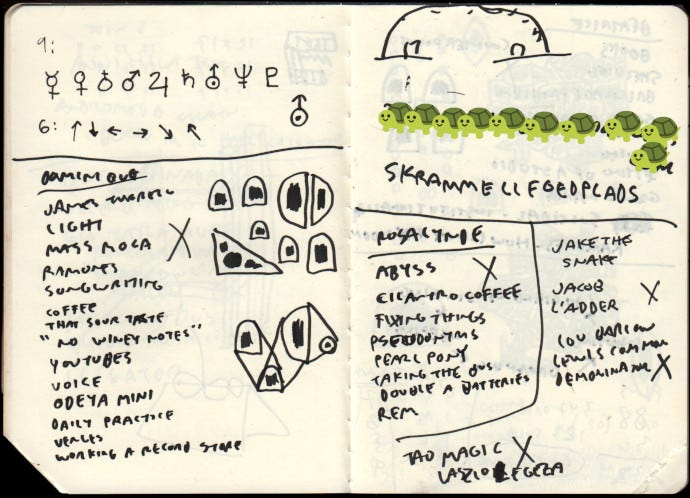 9:
☿ ♀ ♁ ♂ ♃ ♄ ⛢ ♆ ♇
6: ↑ ↓ ← → ↘ ↖
DOMINIQUE
JAMES TURRELL
LIGHT
MASS MOCA
RAMONES
SONGWRITING
COFFEE
THAT SOUR TASTE
"NO WINEY NOTES"
YOUTUBES
VOICE
ODEYA MINI
DAILY PRACTICE
VERGES
WORKING A RECORD STORE
SKRAMMELLEGEDPLADS
ROSALYNDE
ABYSS X
CILANTRO COFFEE
FLYING THINGS
PSEUDONYMS
PEARL PONY
TAKING THE BUS
DOUBLE A BATTERIES
REM
JAKE THE
SNAKE
JACOB
L'ADDER X
LOU BARLOW
LEWIS COMMON
DEMONINATOR X
TAO MAGIC X
LASZLO LEGEZA